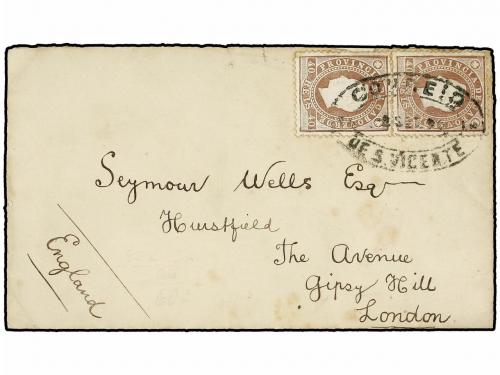 PROVINCIA DE
40 REIS 40
PROVINCIA DE
CORREIO
DE S. VICENTE
Seymour Wells Esq
Hurstfield
The Avenue
Gipsy Hill
London
England